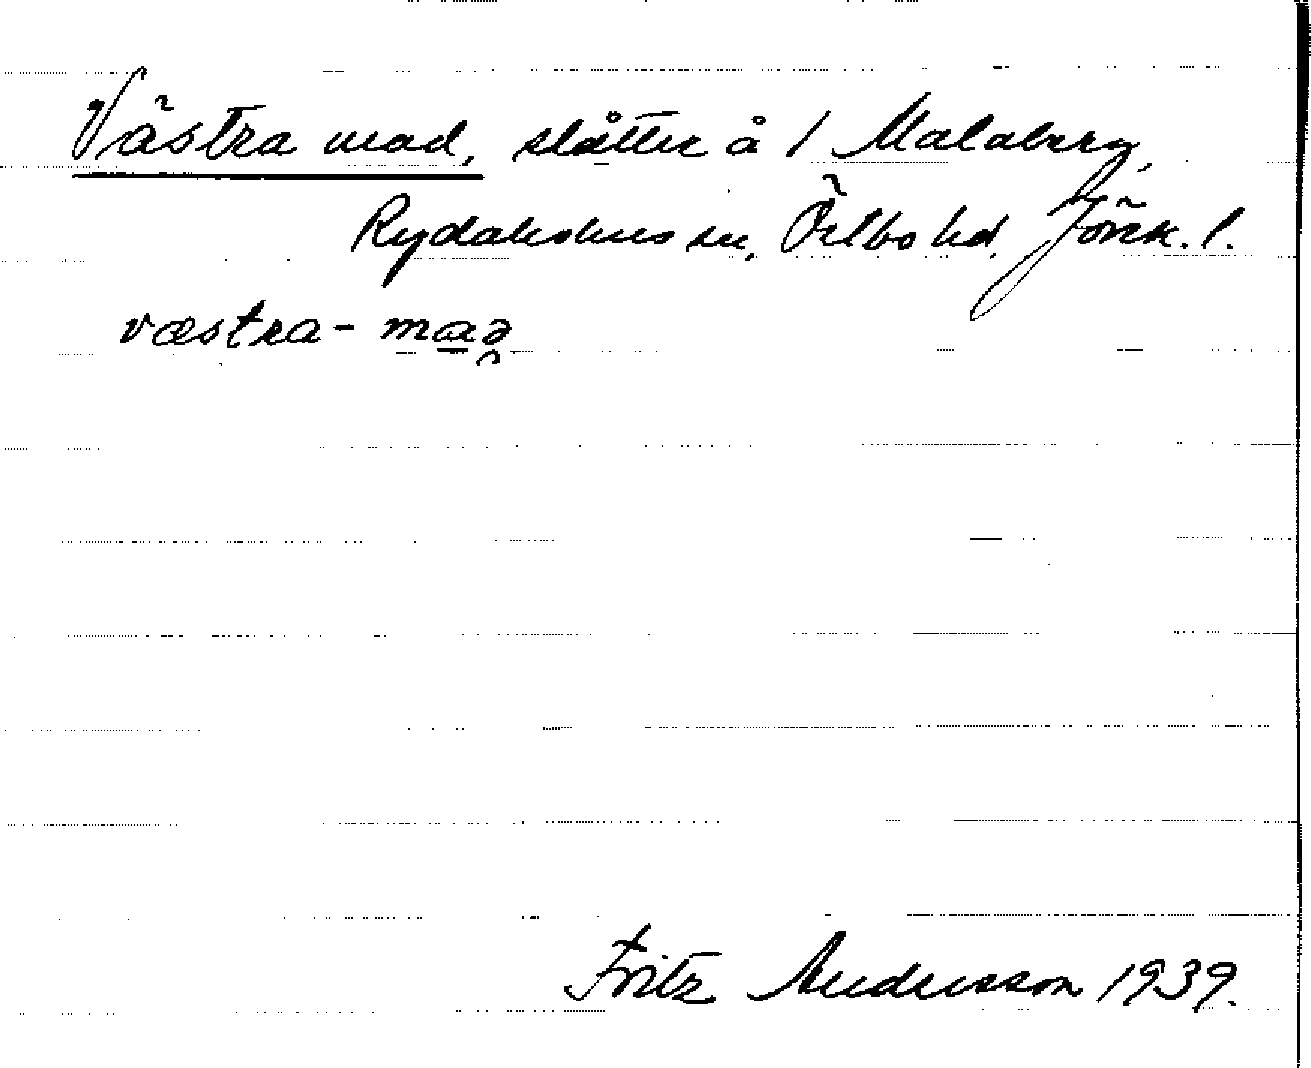 Västra mad, slåtter å 1 Malaberg,
Rydaholms sn, Östbo hd, Jönk. l.
væstra-maə̯
Fritz Andersson 1939.